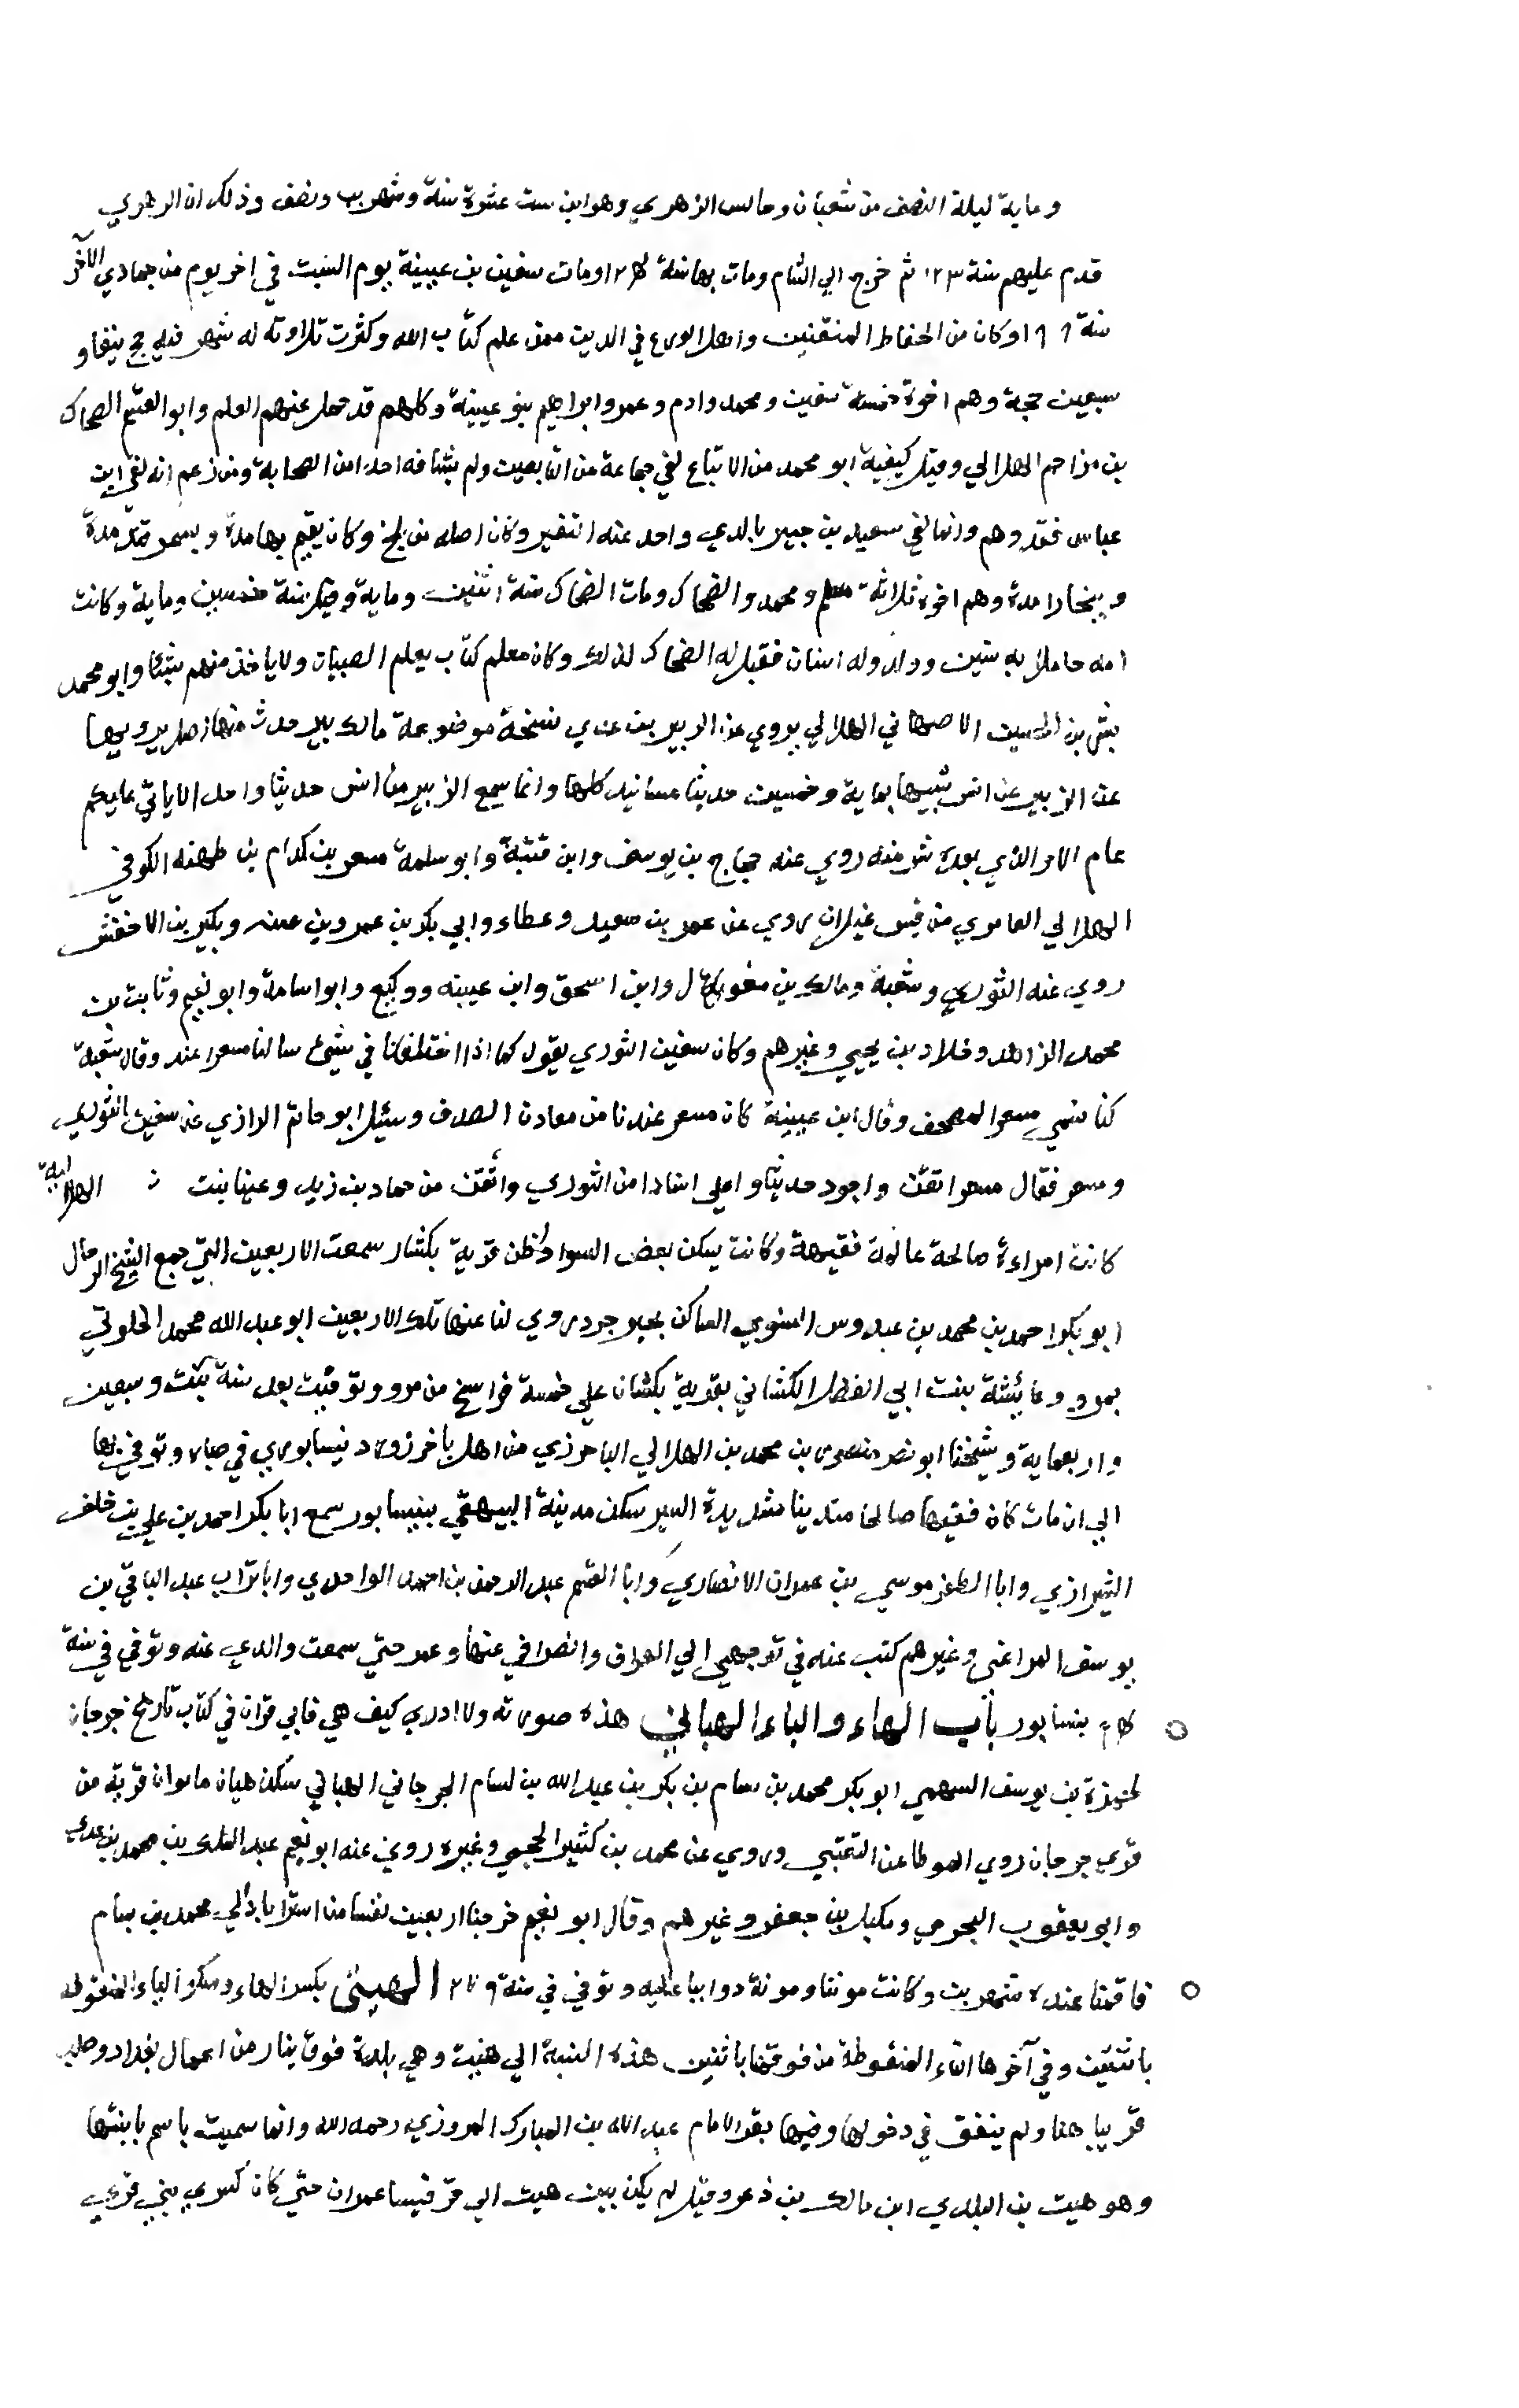 وماية ليلة النصف من شعبان وجالس الزهري وهو ابن ست عشرة سنة وشهرين ونصف وذلك ان الزهري
قدم عليهم سنة ١٢٣ ثم خرج الي الشام ومات بها سنة ١٢٤ ومات سفين بن عيينة يوم السبت في اخر يوم من جمادي الآخر
سنة ١٩٨ وكان من الحفاظ المتقنين واهل الورع في الدين ممن علم كتاب الله وكثرت تلاوته له شهر فيه حج نيفا و
سبعين حجة وهم اخوة خمسة سفين ومحمد وادم وعمر وابراهيم بنو عيينة وكلهم قد حمل عنهم العلم وابو القسم الضحاك
بن مزاحم الهلالي وقيل كنيته ابو محمد من الاتباع لقي جماعة من التابعين ولم يشافه احدا من الصحابة ومن زعم انه لقي ابن
عباس فقد وهم وانما لقي سعيد بن جبير بالري واخذ عنه التفسير وكان اصله من بلخ وكان يقيم بها مدة وبسمرقند مدة
وببخارا مدة وهم اخوة ثلاثة مسلم ومحمد والضحاك ومات الضحاك سنة اثنين وماية وقيل سنة خمسين وماية وكانت
امه حاملا به سنين وولد وله اسنان فقيل له الضحاك لذلك وكان معلم كتاب يعلم الصبيان ولا ياخذ منهم شيئا وابو محمد
بشر بن الحسين الاصبهاني الهلالي يروي عن الزبير بن عدي نسخة موضوعة مالكبير حديث منها اصل يرويها
عن الزبير عن انس شبيها بماية وخمسين حديثا مسانيد كلها وانما سمع الزبير من انس حديثا واحدا لا ياتي عليكم
عام الا والذي بعده شر منه روي عنه حجاج بن يوسف وابن قتيبة وابو سلمة مسعر بن كدام بن ظهيره الكوفي
الهلالي العامري من قيس غيلان روي عن عمير بن سعيد وعطاء وابي بكر بن عمرو بن عتبه وبكير بن الاخنس
روي عنه الثوري وشعبة ومالك بن مغول وابن اسحق وابن عيينه ووكيع وابو اسامة وابو نعيم وثابت بن
محمد الزاهد وخلاد بن يحيي وغيرهم وكان سفين الثوري يقول كنا اذا اختلفنا في شيئ سالنا مسعرا عنه وقال شعبة
كنا نسمي مسعرا المصحف وقال ابن عيينة كان مسعر عندنا من معادن الصدق وسئيل ابو حاتم الرازي عن سفين الثوري
ومسعر فقال مسعر اتقن واجود حديثا واعلي اسنادا من الثوري واتقن من حماد بن زيد وعينا بنت الهلالية
كانت امراءة صالحة عالمة فقيهة وكانت يسكن بعض السواد اظن قرية بكشار سمعت الاربعين التي جمع الشيخ الرحال
ابو بكر احمد بن محمد بن عبدوس النسوي الساكن بجيرجرد روي لنا عنها تلك الاربعين ابو عبد الله محمد الخلوقي
بمرو وعائشة بنت ابي الفضل الكشاني بقرية بكشان علي خمسة فراسخ من مرو وتوفيت بعد سنة ثلث وسبعين
واربعماية وشيخنا ابو نصر منصور بن محمد بن الهلالي الباخرزي من اهل باخرز ورد نيسابور في صباه وتوفي بها
الي ان مات كان فقيها صالحا متدينا شديدة السير سكن مدينة البيهقي بنيسابور سمع ابا بكر احمد بن علي بن خلف
الشيرازي وابا المظفر موسي بن عمران الانصاري وابا القسم عبد الرحمن بن احمد الواحدي وابا تراب عبد الباقي بن
يوسف المراغي وغيرهم كتب عنه في توجهي الي العراق وانصرافي عنها وعمر حتي سمعت والدي عنه وتوفي في سنة
بنسابور باب الهاء والباء الهباني هذه صورته ولا ادري كيف هي فاني قران في كتاب تاريخ جرجان
لحمزة بن يوسف السهمي ابو بكر محمد بن بسام بن بكر بن عبد الله بن بسام الجرجاني الهباني سكن هيان ماسوان قرية من
قري جرجان روي الموطا عن القعنبي وروي عن محمد بن كثير الحجبي وغيره روي عنه ابو نعيم عبد الملك بن محمد بن عدي
وابو يعقوب البحري وميكيل بن جعفر وغيرهم وقال ابو نعيم خرجنا اربعين نفسا من استراباد الي محمد بن بسام
فاقمنا عنده شهرين وكانت مونتنا ومونة دوابنا عليه وتوفي في سنة ٢٧٩ الهيتي بكسر الهاء وسكون الياء المنقوطه
باثنتين وفي آخرها التاء المنقوطة من فوقها باثنين هذه النسبة الي هيت وهي بلدة فوق ينار من اعمال بغداد وصلت
قريبا منها ولم يتفق في دخولها وفيها بقر الامام عبد الله بن المبارك المروزي رحمه الله وانما سميت باسم بانيها
وهو هيت بن البلدي ابن مالك بن ذعر وقيل لم يكن بين هيت الي قرقيسا عمران حتي كان كسري بني قري